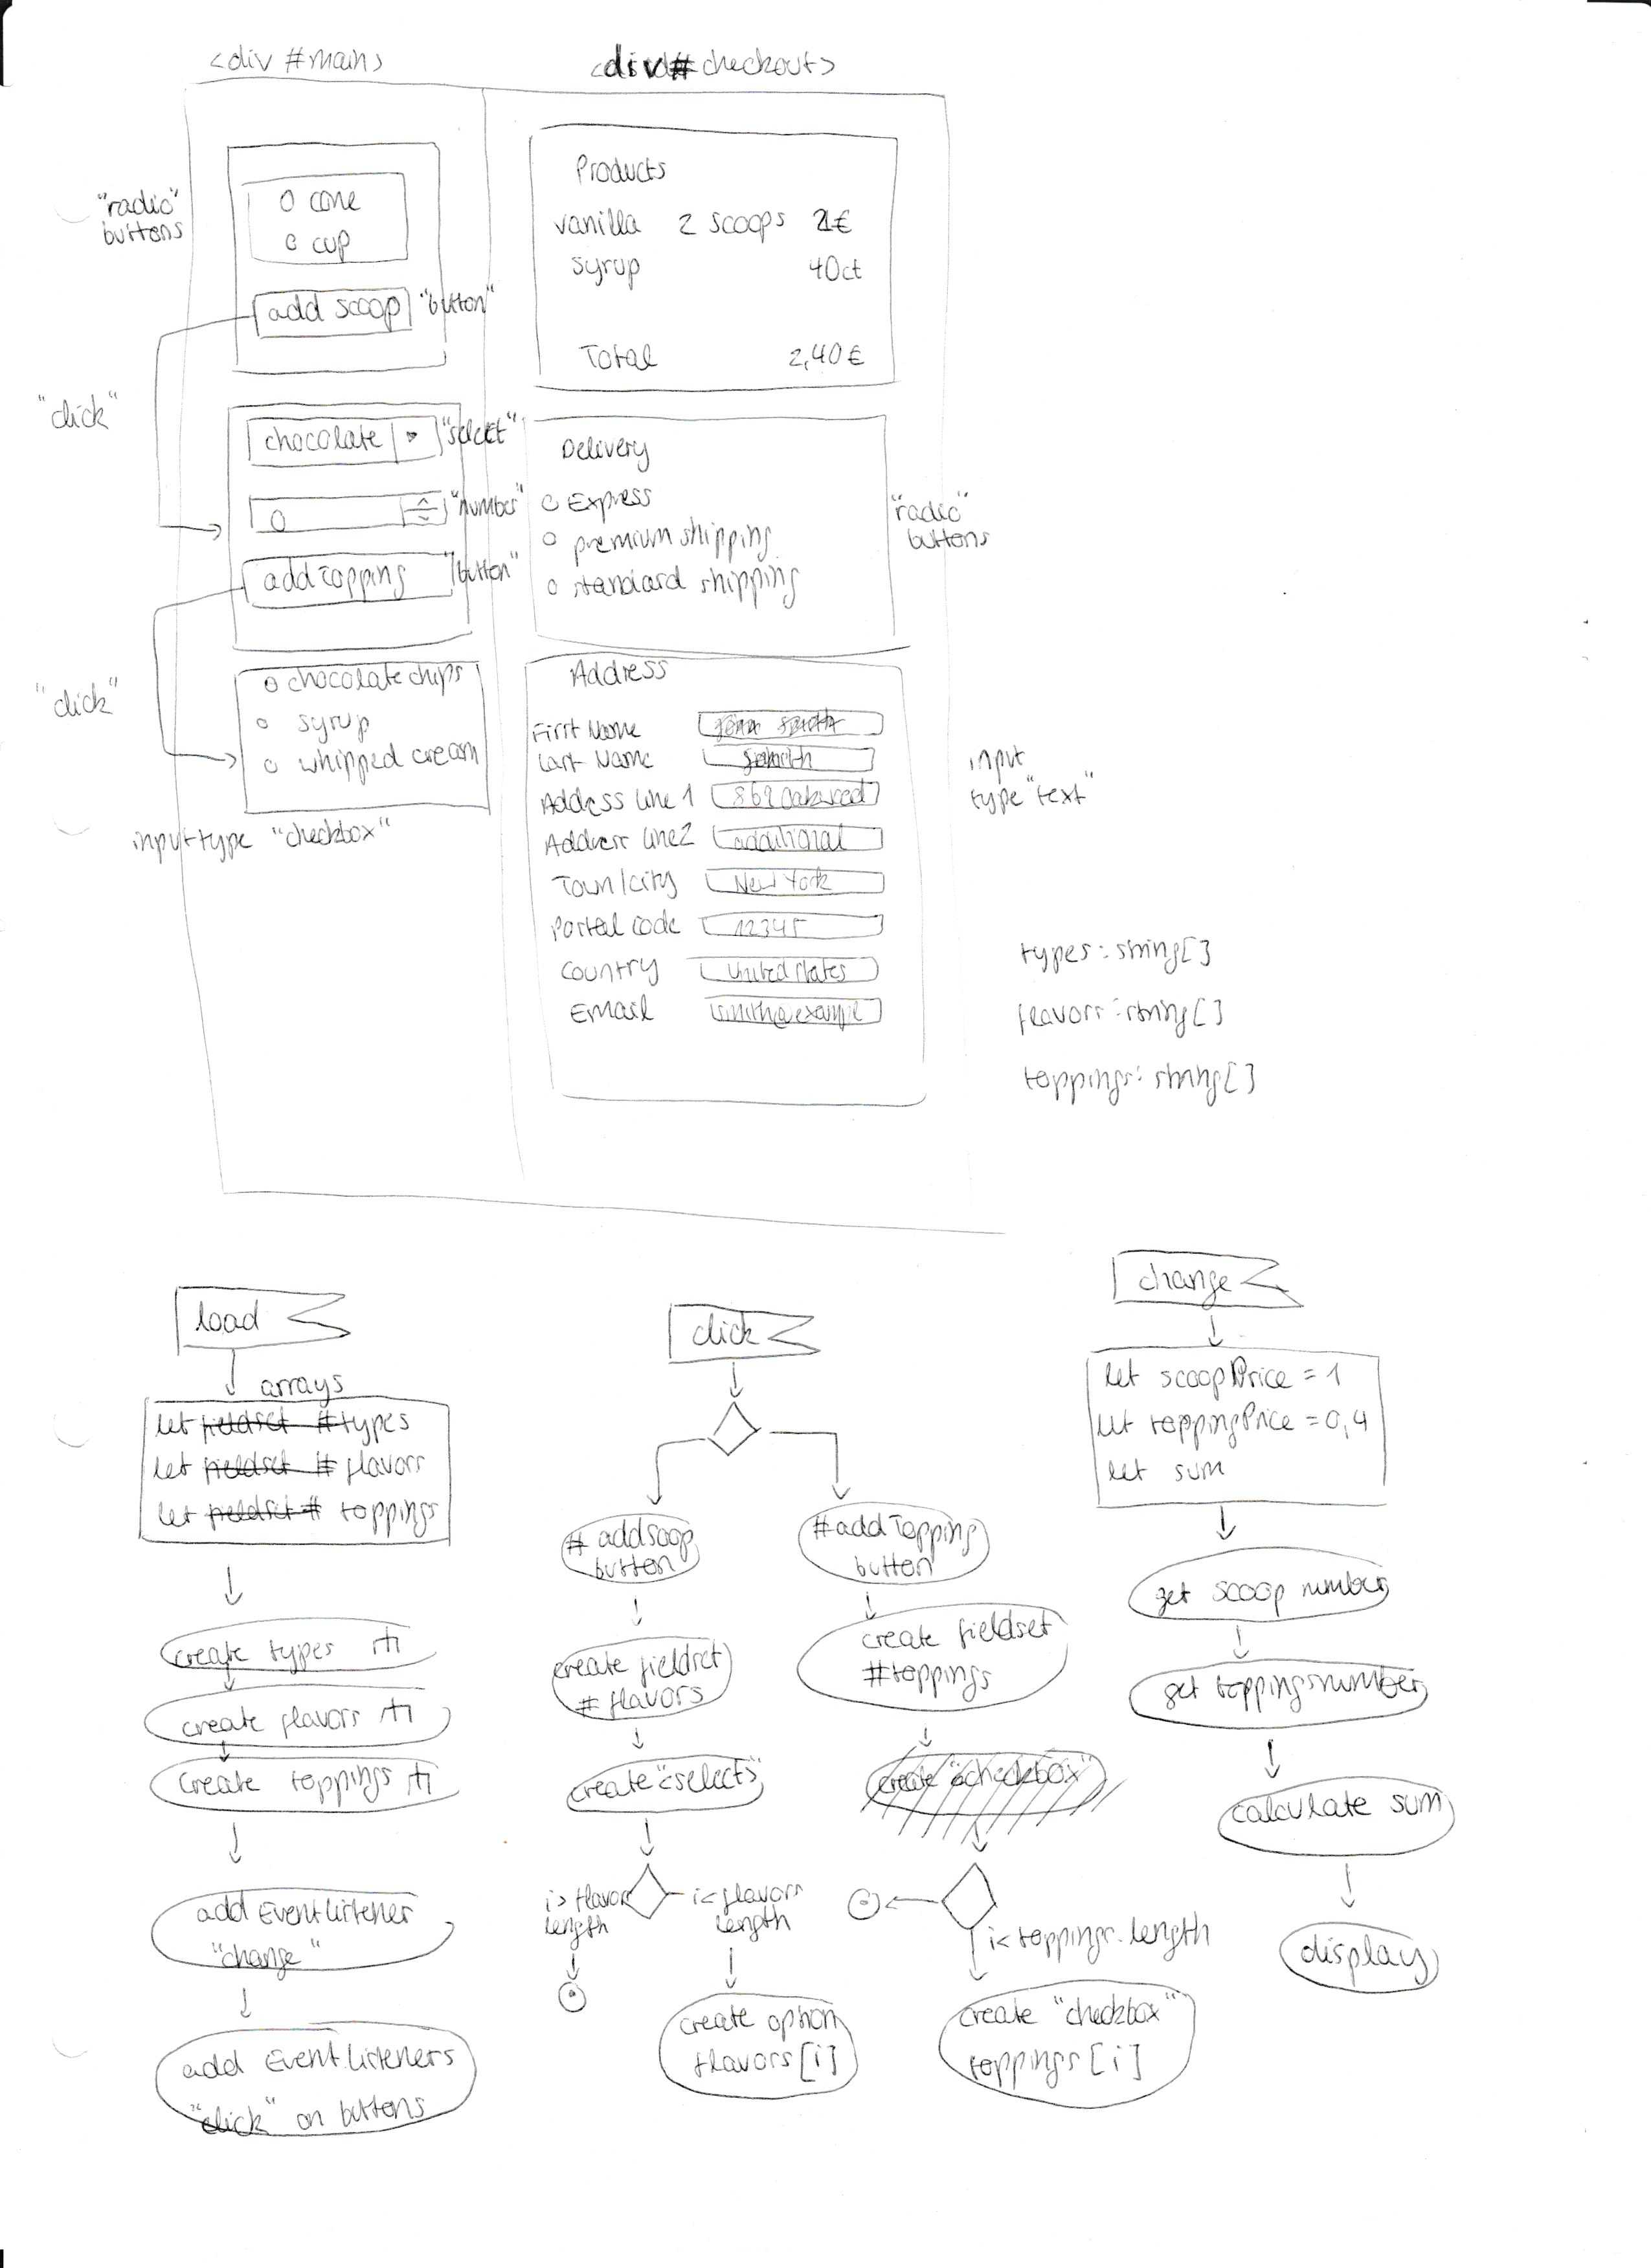 <div #main>
<div# checkout>
"radio"
buttons
O cone
O cup
add scoop
"button"
"click"
chocolate
"select"
0
"number"
add Topping
"button"
"click"
O chocolate chips
O syrup
O whipped cream
input type "checkbox"
Products
vanilla 2 scoops 2€
syrup 40ct
Total 2,40€
Delivery
O Express
O premium shipping
O standard shipping
"radio"
buttons
Address
First Name
Last Name
Address Line 1 869 Oakwood
Address Line 2 additional
Town/City New York
Postal Code 12345
Country United States
Email smith@example
input
type "text"
types: string[]
flavors: string[]
toppings: string[]
load
arrays
let fieldset #types
let fieldset # flavors
let fieldset # toppings
create types
create flavors
create toppings
add EventListener
"change"
add EventListeners
"click" on buttons
click
# addScoop
button
create fieldset
# flavors
create "<select>
i> flavor
length
i< flavors
length
create option
flavors[i]
#addTopping
button
create fieldset
#toppings
create "checkbox"
i< toppings.length
create "checkbox"
toppings[i]
change
let scoopPrice = 1
let toppingPrice = 0,4
let sum
get scoop number
get toppingsnumber
calculate sum
display